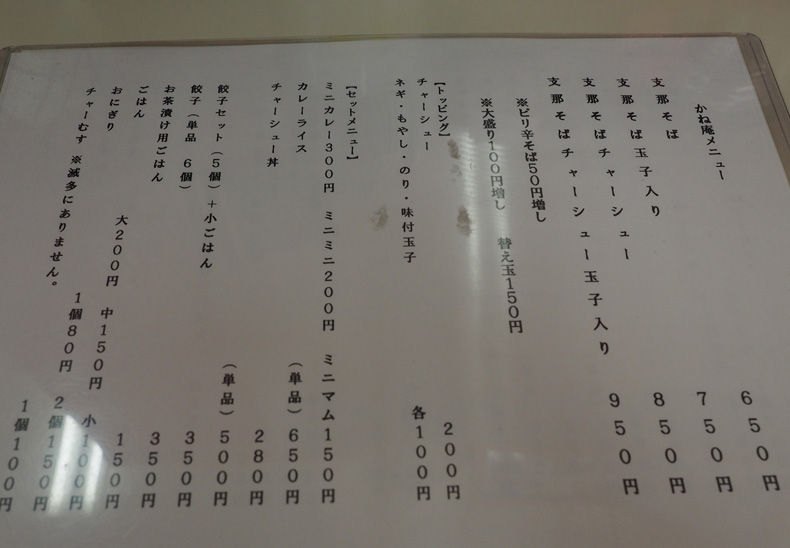 かね庵メニュー
支那そば 650円
支那そば玉子入り 750円
支那そばチャーシュー 850円
支那そばチャーシュー玉子入り 950円
※ピリ辛そば50円増し
※大盛り100円増し 替え玉150円
【トッピング】
チャーシュー 200円
ネギ・もやし・のり・味付玉子 各100円
【セットメニュー】
ミニカレー300円 ミニミニ200円 ミニマム150円
カレーライス (単品)650円
チャーシュー丼 280円
(単品)500円
餃子セット(5個)+小ごはん 350円
餃子(単品 6個) 350円
お茶漬け用ごはん 150円
ごはん 大200円 中150円 小100円
おにぎり 1個80円 2個150円
チャーむす ※滅多にありません。 1個100円